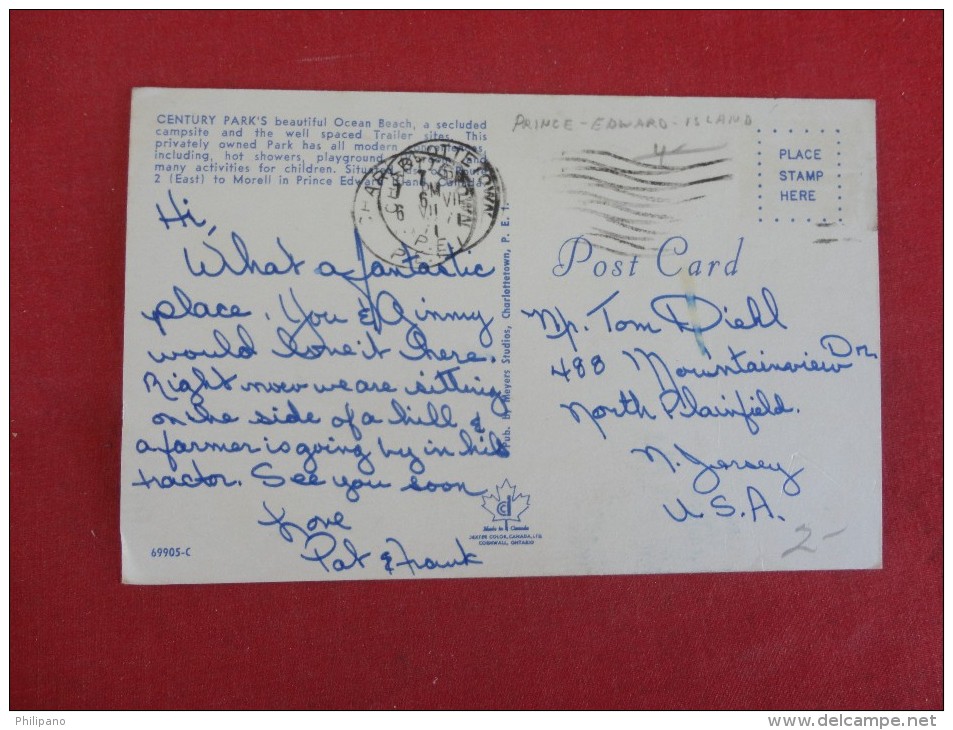 CENTURY PARK'S beautiful Ocean Beach, a secluded
campsite and the well spaced Trailer sites. This
privately owned Park has all modern
including, hot showers, playground and
many activities for children. Situated
2 (East) to Morell in Prince Edward Island, Canada.
PRINCE-EDWARD-ISLAND
4
PLACE
STAMP
HERE
CHARLOTTETOWN
PM
6 VII
71
P.E.I.
Post Card
Hi,
What a fantastic
place. You & Ginny
would love it here.
Right now we are sitting
on the side of a hill &
a farmer is going by in his
tractor. See you soon
Love
Pat & Frank
Pub. by Meyers Studios, Charlottetown, P. E. I.
Mr. Tom Diehl
488 Mountainview Dr.
North Plainfield.
N. Jersey
U.S.A.
2-
Made in Canada
DEXTER COLOR, CANADA, LTD.
CORNWALL, ONTARIO
69905-C
Philipano
www.delcampe.net